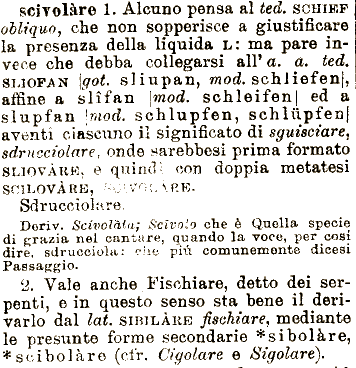 scivolàre 1. Alcuno pensa al ted. SCHIEF
obliquo, che non sopperisce a giustificare
la presenza della liquida L: ma pare in-
vece che debba collegarsi all'a. a. ted.
SLIOFAN |got. sliupan, mod. schliefen|,
affine a slîfan |mod. schleifen| ed a
slupfan |mod. schlupfen, schlüpfen|
aventi ciascuno il significato di sguisciare,
sdrucciolare, onde sarebbesi prima formato
SLIOVÀRE, e quindi con doppia metatesi
SCILOVÀRE, SCIVOLÀRE.
Sdrucciolare.
Deriv. Scivolàta; Scìvolo che è Quella specie
di grazia nel cantare, quando la voce, per così
dire, sdrucciola: che più comunemente dicesi
Passaggio.
2. Vale anche Fischiare, detto dei ser-
penti, e in questo senso sta bene il deri-
varlo dal lat. SIBILÀRE fischiare, mediante
le presunte forme secondarie *sibolàre,
*scibolàre (cfr. Cigolare e Sigolare).